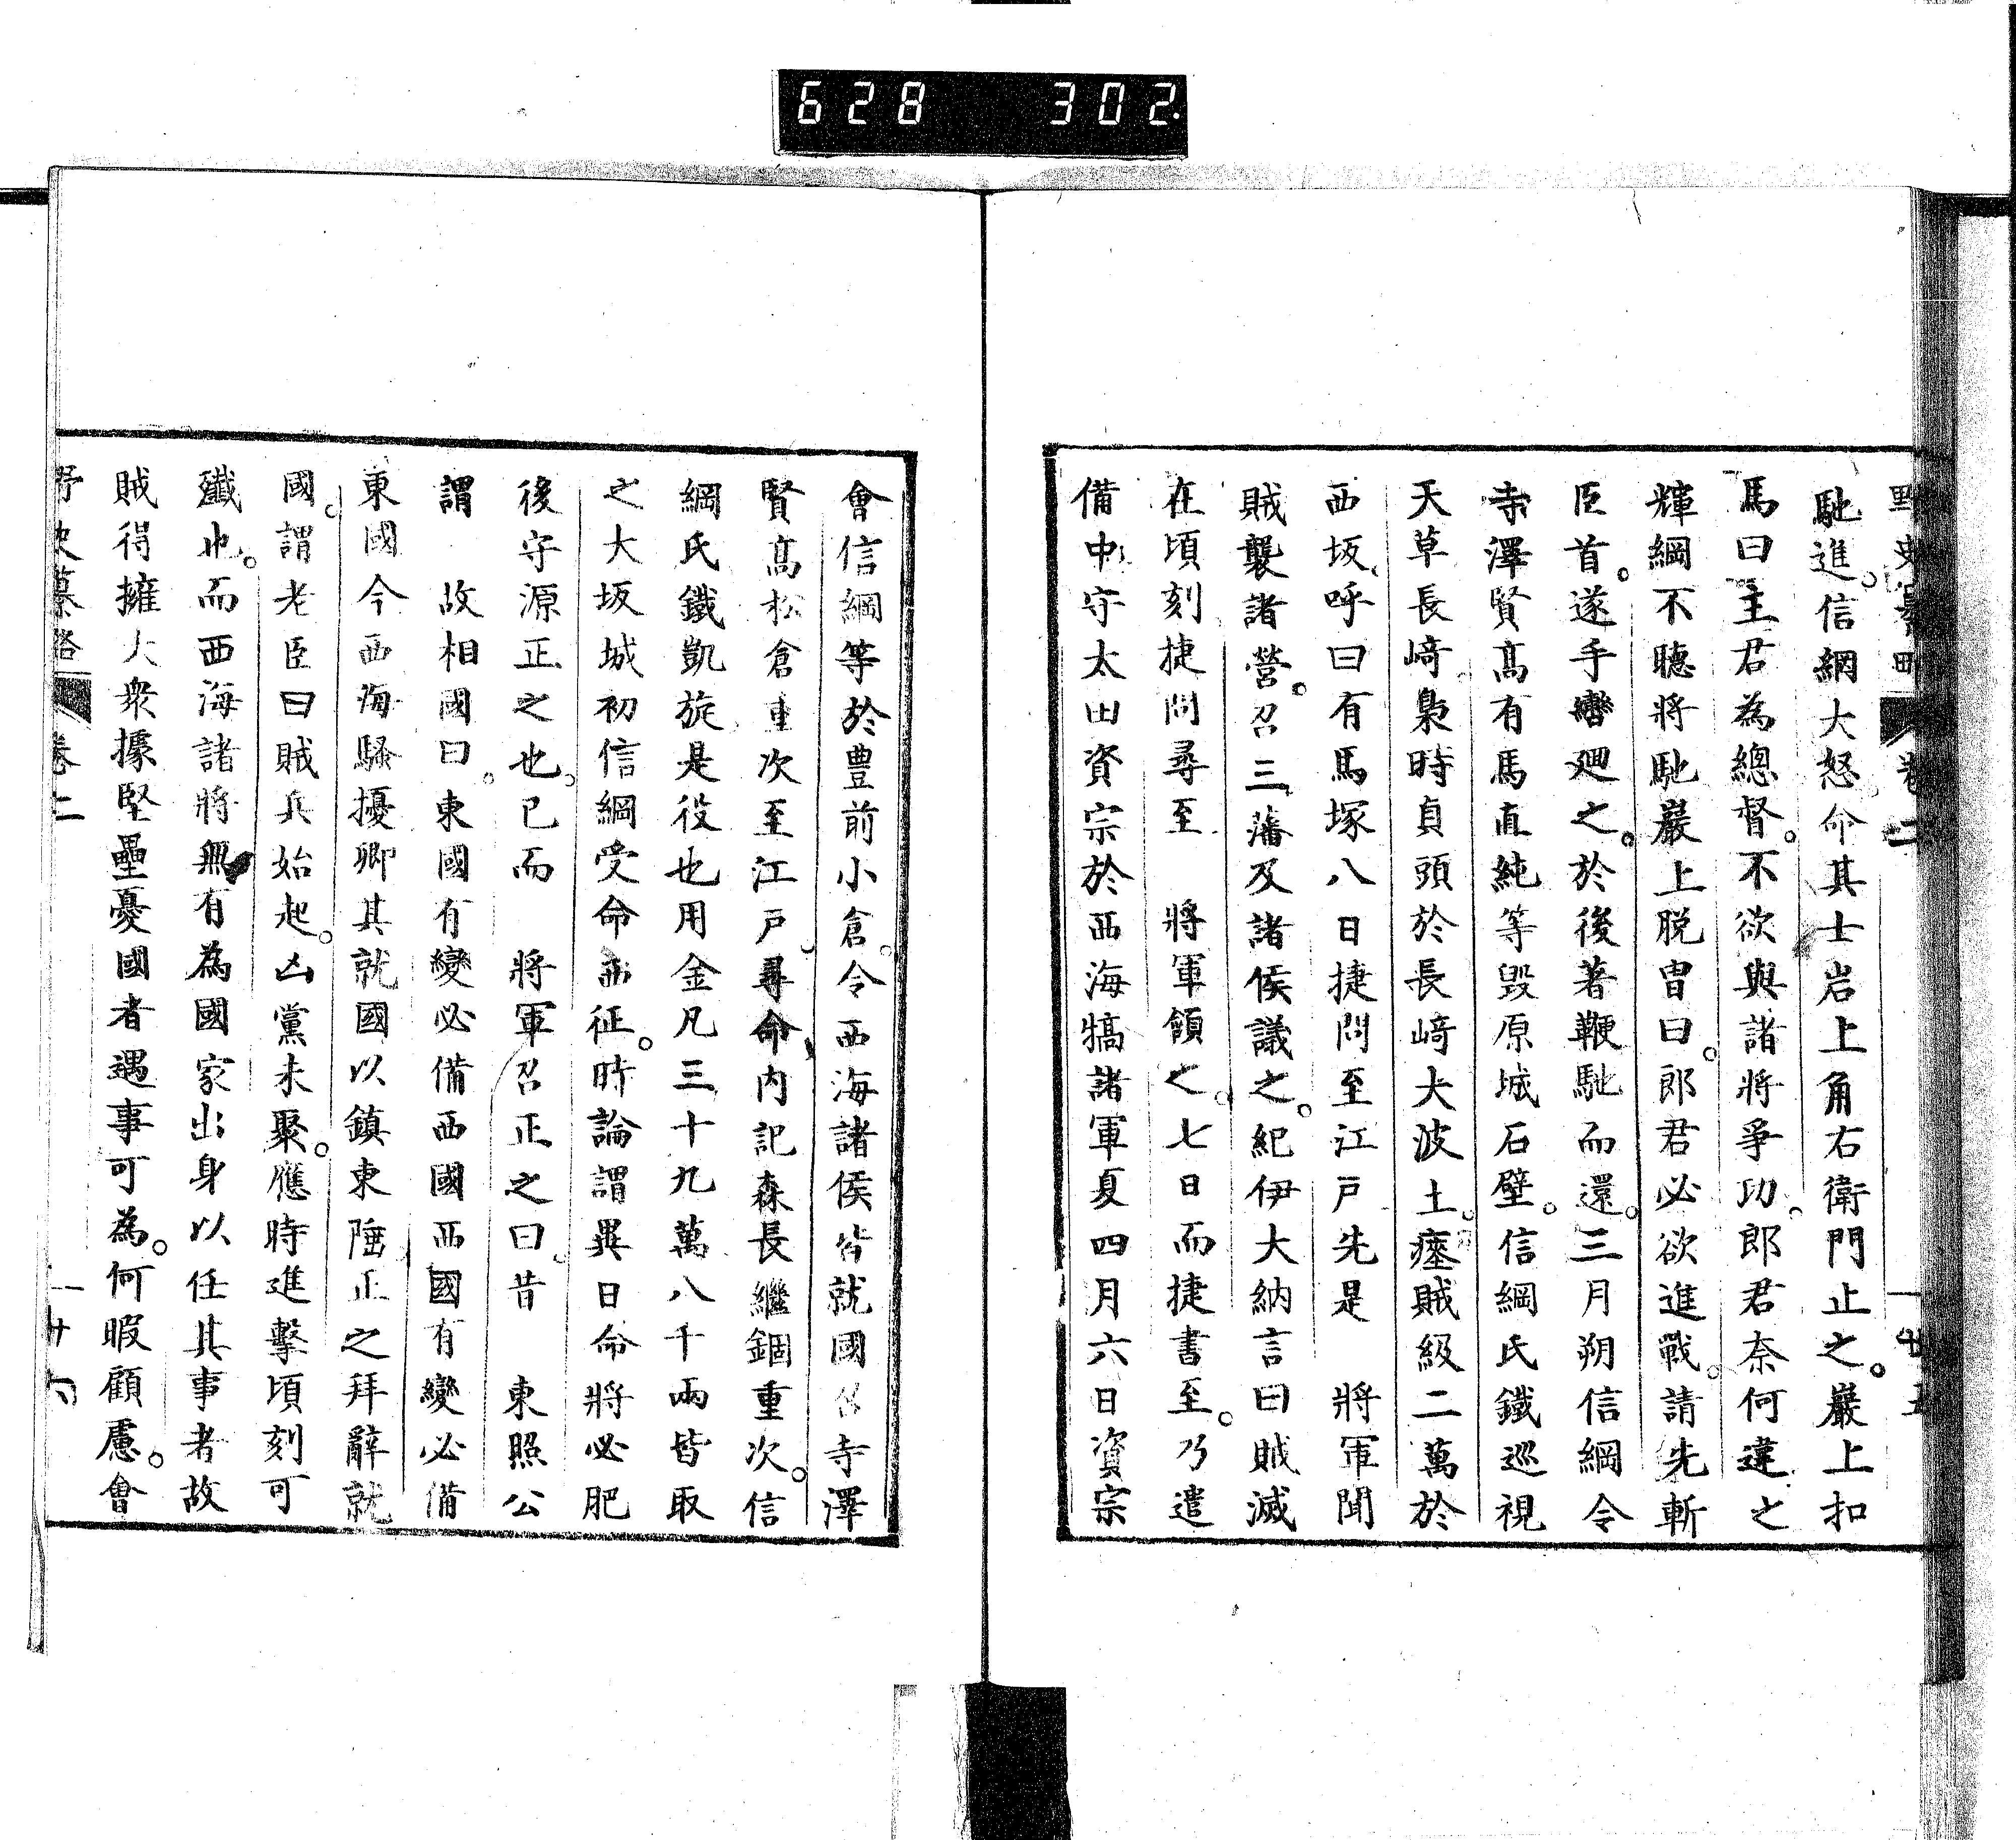 628 302
馳進。信綱大怒命其士岩上角右衛門止之。巖上扣
馬曰主君為總督。不欲與諸將爭功。郎君奈何違之
輝綱不聽將馳巖上脱冑曰。郎君必欲進戰。請先斬
臣首。遂手轡廻之。於後著鞭馳而還。三月朔信綱令
寺澤賢高有馬直純等毀原城石壁。信綱氏鐵巡視
天草長﨑。梟時貞頭於長﨑大波土。瘞賊級二萬於
西坂。呼曰有馬塚八日捷問至江戸先是　將軍聞
賊襲諸營。召三藩及諸侯議之。紀伊大納言曰賊滅
在頃刻捷問尋至　將軍頷之。七日而捷書至。乃遣
備中守太田資宗於西海犒諸軍夏四月六日資宗
會信綱等於豊前小倉。令西海諸侯皆就國召寺澤
賢高松倉重次至江戸。尋命内記森長繼錮重次。信
綱氏鐵凱旋是役也用金凡三十九萬八千兩皆取
之大坂城初信綱受命西征。時論謂異日命將必肥
後守源正之也。已而　將軍召正之曰。昔　東照公
謂　故相國曰。東國有變必備西國西國有變必備
東國今西海騷擾卿其就國以鎮東陲正之拜辭就
國。謂老臣曰賊兵始起。凶黨未聚。應時進擊頃刻可
殲也。而西海諸將無有為國家出身以任其事者故
賊得擁大衆據堅壘憂國者遇事可為。何暇顧慮。會
野史纂略　卷二　廿六